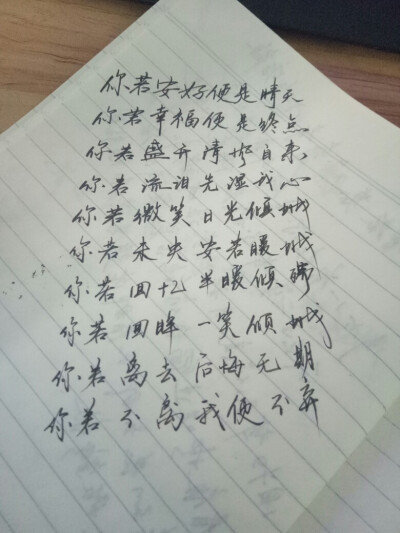 你若安好便是晴天
你若幸福便是终点
你若盛开清风自来
你若流泪先湿我心
你若微笑日光倾城
你若未央安若暖城
你若回忆半暖倾殇
你若回眸一笑倾城
你若离去后悔无期
你若不离我便不弃